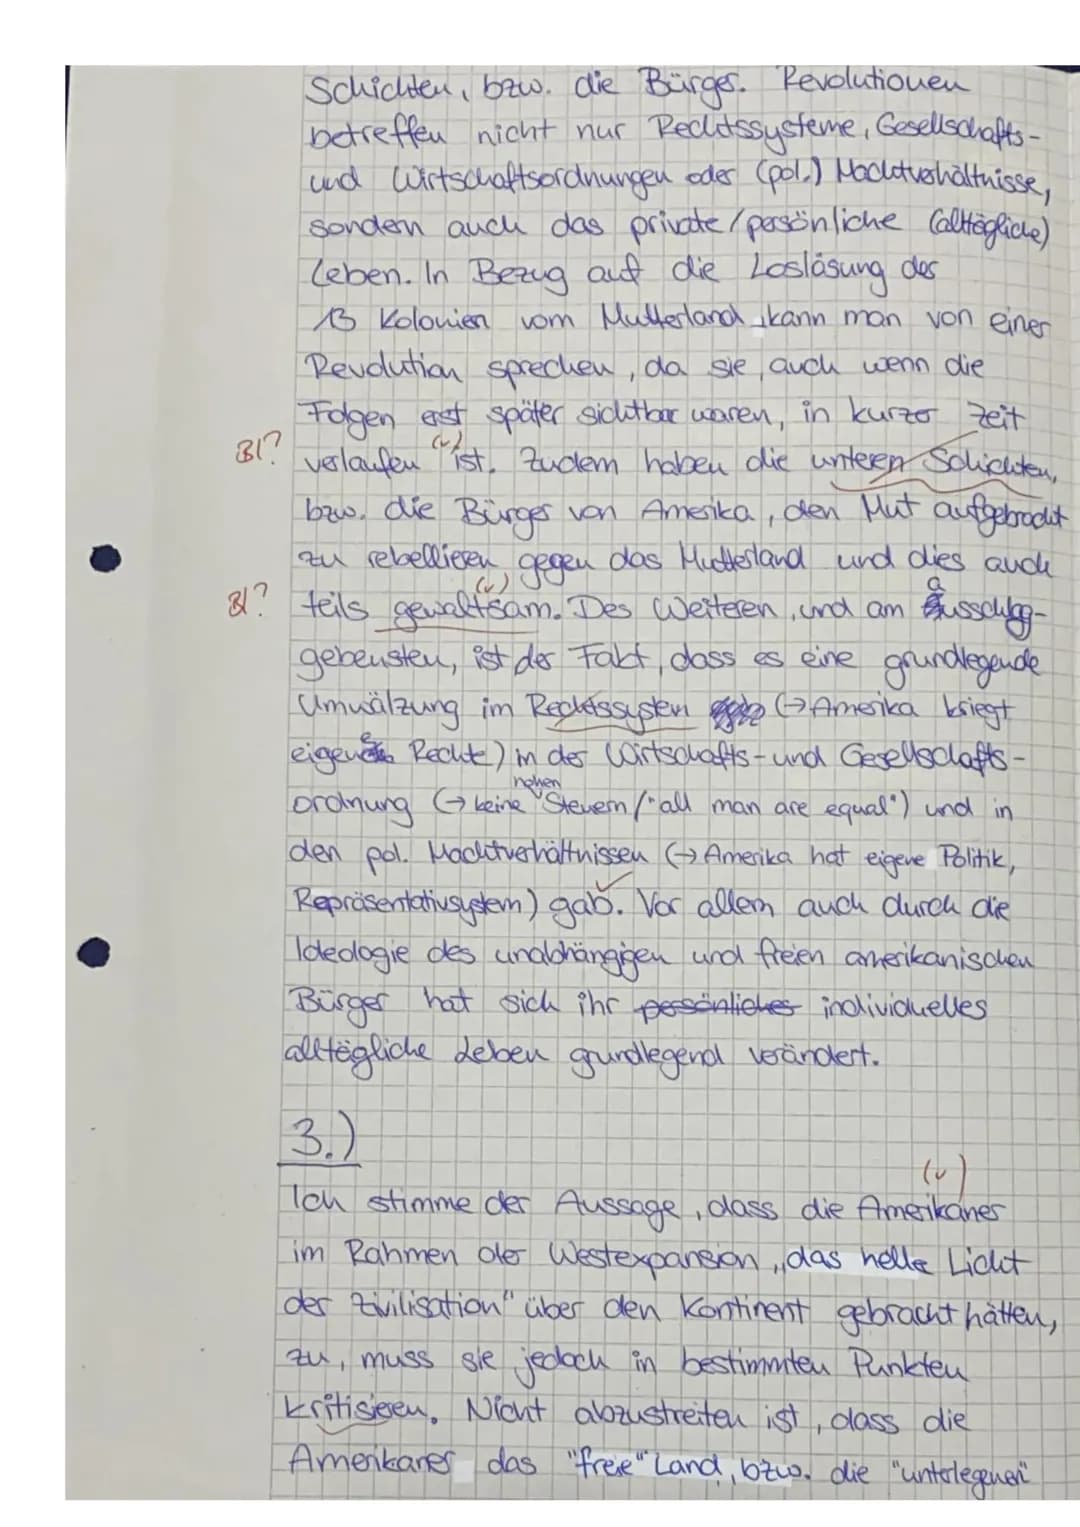 Schichten, bzw. die Bürger. Revolutionen
betreffen nicht nur Rechtssysteme, Gesellschafts-
und Wirtschaftsordnungen oder (pol.) Machtverhältnisse,
sondern auch das private/persönliche (alltägliche)
Leben. In Bezug auf die Loslösung der
13 Kolonien vom Mutterland, kann man von einer
Revolution sprechen, da sie, auch wenn die
Folgen erst später sichtbar waren, in kurzer Zeit
(v)
Bl? verlaufen ist. Zudem haben die unteren Schichten,
bzw. die Bürger von Amerika, den Mut aufgebracht
zu rebellieren gegen das Mutterland und dies auch
(v)
Bl? teils gewaltsam. Des Weiteren, und am ausschlag-
gebensten, ist der Fakt, dass es eine grundlegende
Umwälzung im Rechtssystem (→ Amerika kriegt
eigene Rechte) in der Wirtschafts- und Gesellschafts-
hohen
ordnung (→ keine Steuern/"all man are equal") und in
den pol. Machtverhältnissen (→ Amerika hat eigene Politik,
Repräsentativsystem) gab. Vor allem auch durch die
Ideologie des unabhängigen und freien amerikanischen
Bürger hat sich ihr persönliches individuelles
alltägliche Leben grundlegend verändert.
3.)
(v)
Ich stimme der Aussage, dass die Amerikaner
im Rahmen der Westexpansion „das helle Licht
der Zivilisation" über den Kontinent gebracht hätten,
zu, muss sie jedoch in bestimmten Punkten
kritisieren. Nicht abzustreiten ist, dass die
Amerikaner das "freie" Land, bzw. die "unterlegenen"